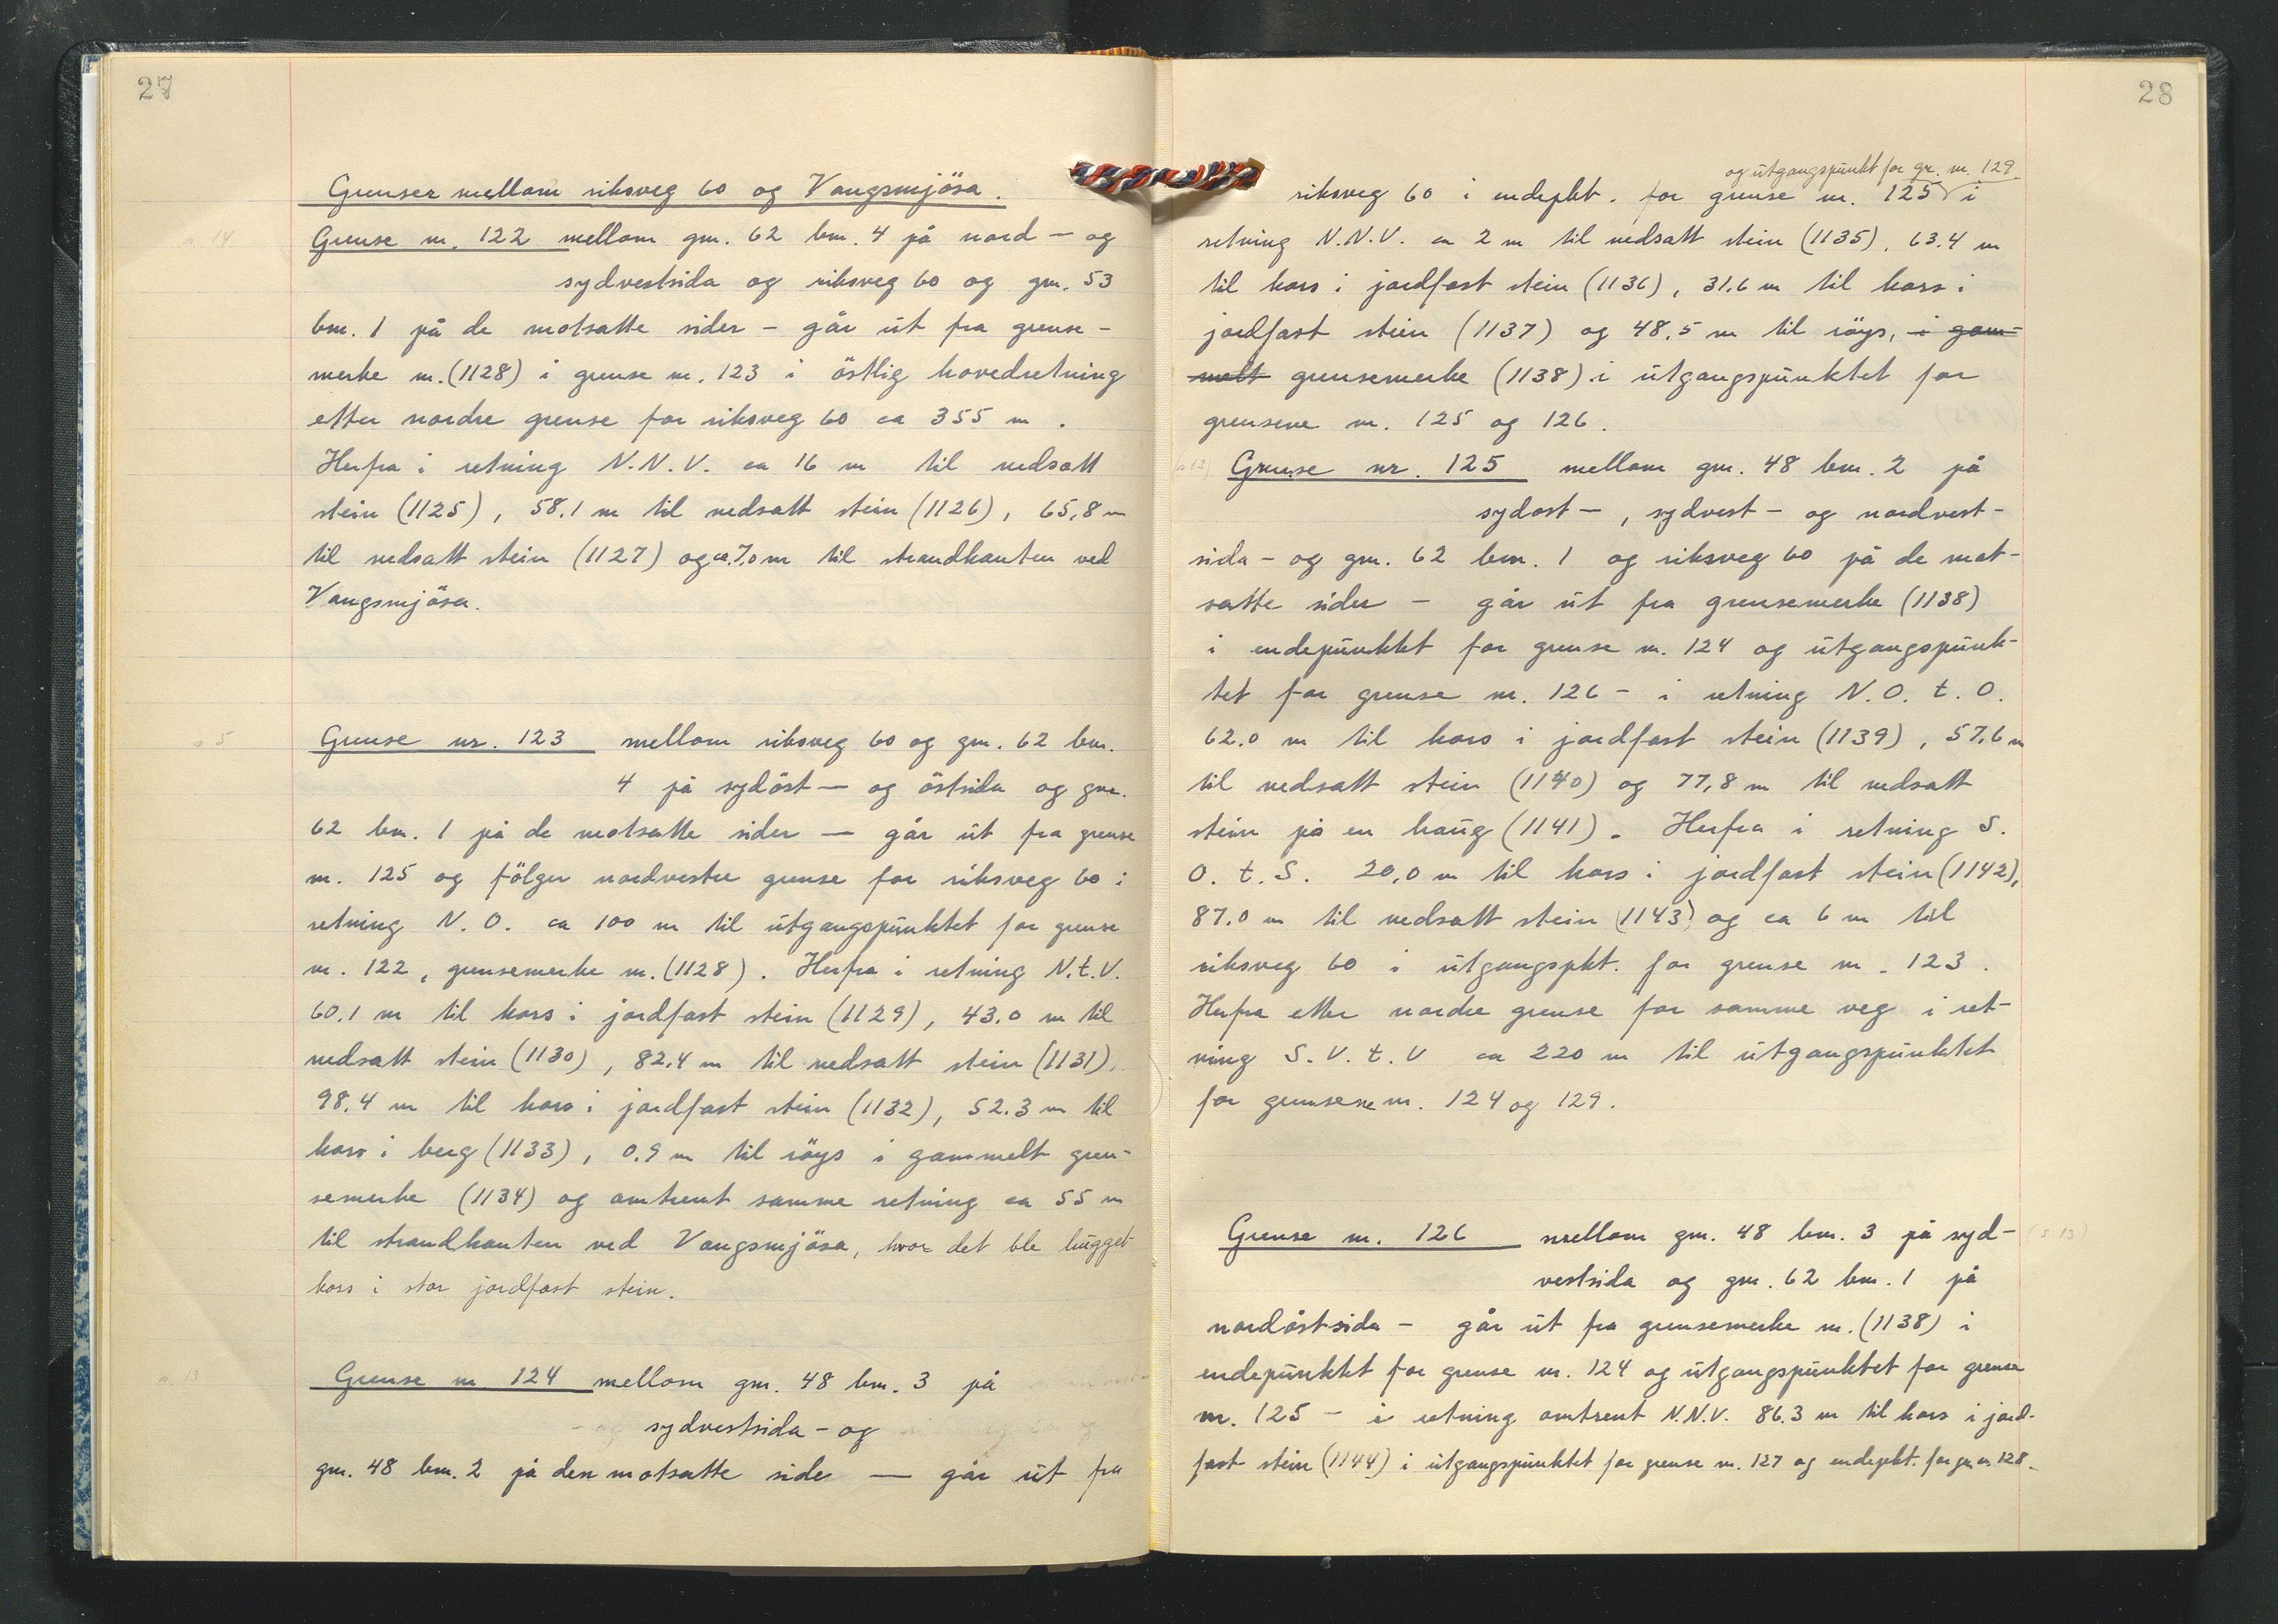 27
Grenser mellom riksveg 60 og Vangsmjösa.
s. 14
Grense nr. 122 mellom gnr. 62 bnr. 4 på nord - og
sydvestsida og riksveg 60 og gnr. 53
bnr. 1 på de motsatte sider - går ut fra grense-
merke nr. (1128) i grense nr. 123 i östlig hovedretning
etter nordre grense for riksveg 60 ca 355 m .
Herfra i retning N.N.V. ca 16 m til nedsatt
stein (1125), 58.1 m til nedsatt stein (1126), 65,8 m
til nedsatt stein (1127) og ca. 7.0 m til strandkanten ved
Vangsmjösa.
s 5
Grense nr. 123 mellom riksveg 60 og gnr. 62 bnr.
4 på sydöst - og östsida og gnr.
62 bnr. 1 på de motsatte sider - går ut fra grense
nr. 125 og fölger nordvestre grense for riksveg 60 i
retning N. O. ca 100 m til utgangspunktet for grense
nr. 122, grensemerke nr. (1128). Herfra i retning N.t.V.
60.1 m til kors i jordfast stein (1129), 43.0 m til
nedsatt stein (1130), 82.4 m til nedsatt stein (1131),
98.4 m til kors i jordfast stein (1132), 52.3 m til
kors i berg (1133), 0.9 m til röys i gammelt gren-
semerke (1134) og omtrent samme retning ca 55 m
til strandkanten ved Vangsmjösa, hvor det ble hugget
kors i stor jordfast stein.
s. 13
Grense nr 124 mellom gnr. 48 bnr. 3 på
sydvestsida - og
gnr. 48 bnr. 2 på den motsatte side - går ut fra
28
og utgangspunkt for gr. nr. 129.
riksveg 60 i endepkt. for grense nr. 125 i
retning N.N.V. ca 2 m til nedsatt stein (1135), 63.4 m
til kors i jordfast stein (1136), 31.6 m til kors i
jordfast stein (1137) og 48.5 m til röys, i gam-
melt grensemerke (1138) i utgangspunktet for
grensene nr. 125 og 126.
(s 13)
Grense nr. 125 mellom gnr. 48 bnr. 2 på
sydost - , sydvest - og nordvest-
sida - og gnr. 62 bnr. 1 og riksveg 60 på de mot-
satte sider - går ut fra grensemerke (1138)
i endepunktet for grense nr. 124 og utgangspunk-
tet for grense nr. 126 - i retning N. O. t. O.
62.0 m til kors i jordfast stein (1139), 57.6 m
til nedsatt stein (1140) og 77,8 m til nedsatt
stein på en haug (1141). Herfra i retning S.
O. t. S. 20,0 m til kors i jordfast stein (1142),
87.0 m til nedsatt stein (1143) og ca 6 m til
riksveg 60 i utgangspkt. for grense nr. 123.
Herfra etter nordre grense for samme veg i ret-
ning S. V. t. V ca 220 m til utgangspunktet
for grensene nr. 124 og 129.
Grense nr. 126 mellom gnr. 48 bnr. 3 på syd-
(s 13)
vestsida og gnr. 62 bnr. 1 på
nordöstsida - går ut fra grensemerke nr. (1138) i
endepunktet for grense nr. 124 og utgangspunktet for grense
nr. 125 - i retning omtrent N.N.V. 86.3 m til kors i jord-
fast stein (1144) i utgangspunktet for grense nr. 127 og endepkt. for gr. nr. 128.